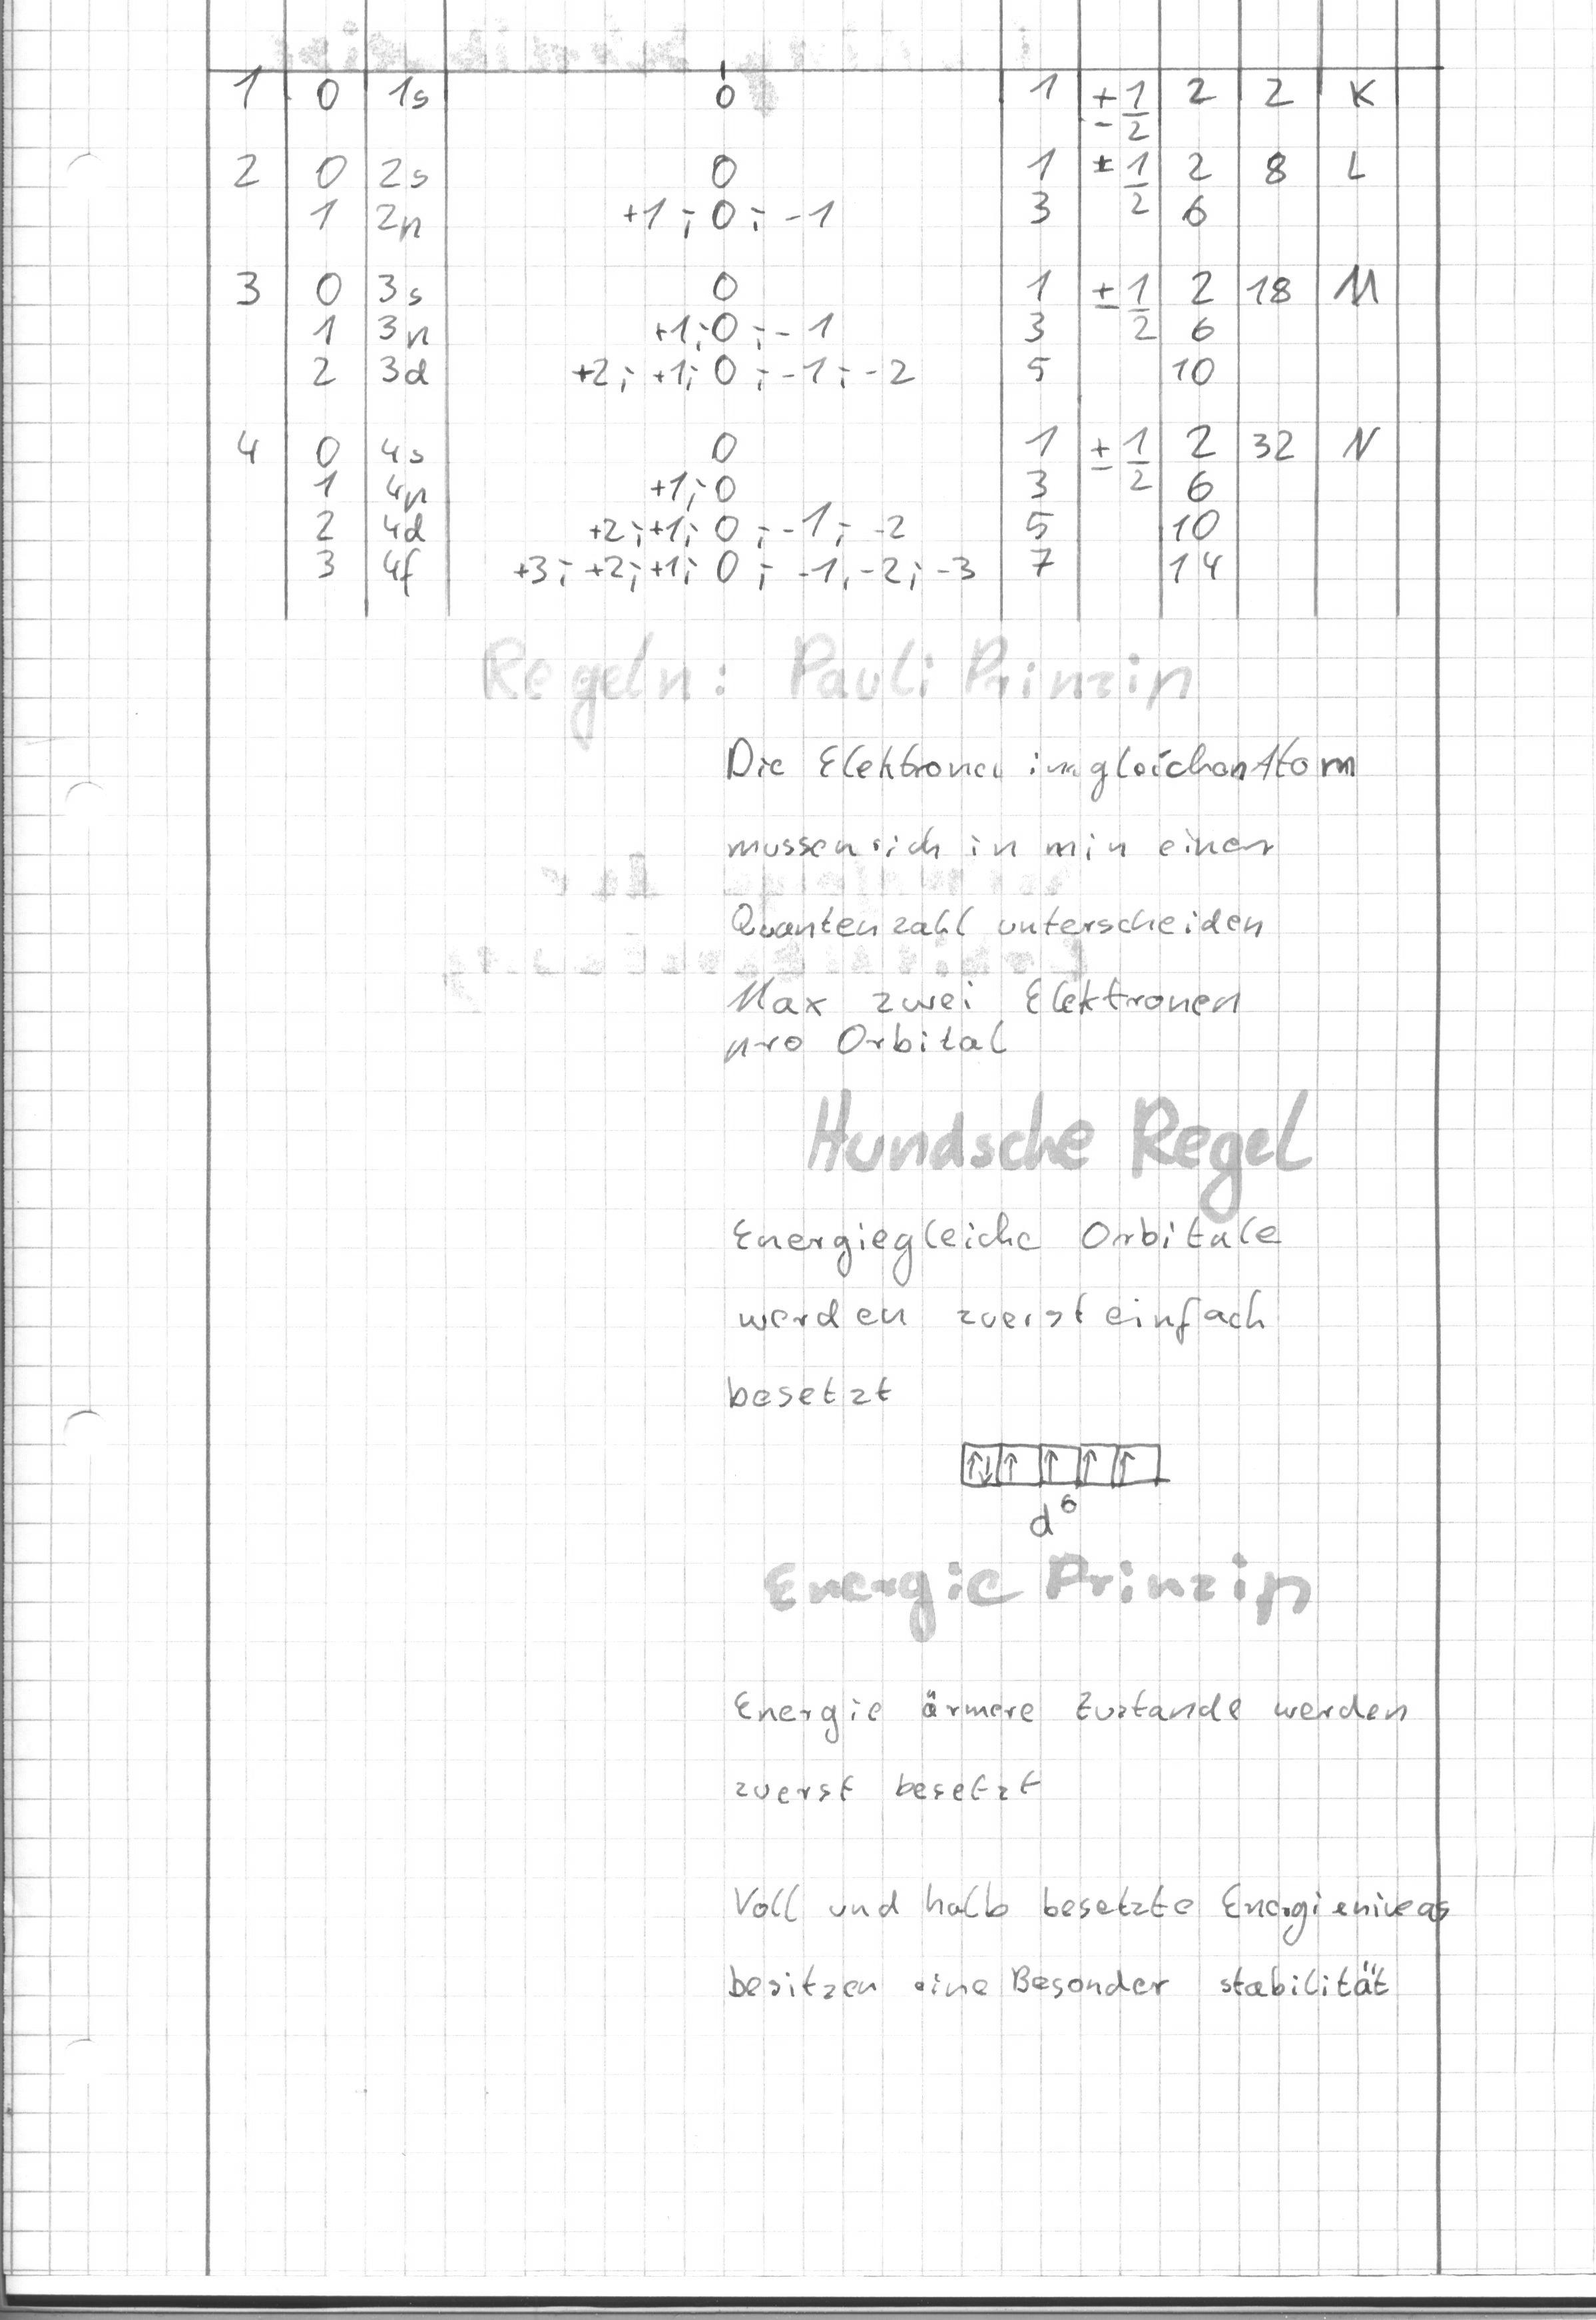 1 0 1s 0 1 ± 1/2 2 2 K
2 0 2s 0 1 ± 1/2 2 8 L
1 2p +1; 0; -1 3 6
3 0 3s 0 1 ± 1/2 2 18 M
1 3p +1; 0; -1 3 6
2 3d +2; +1; 0; -1; -2 5 10
4 0 4s 0 1 ± 1/2 2 32 N
1 4p +1; 0 3 6
2 4d +2; +1; 0; -1; -2 5 10
3 4f +3; +2; +1; 0; -1, -2; -3 7 14
Regeln: Pauli Prinzip
Die Elektronen im gleichen Atom
mussen sich in min einer
Quantenzahl unterscheiden
Max zwei Elektronen
pro Orbital
Hundsche Regel
Energiegleiche Orbitale
werden zuerst einfach
besetzt
↑↓ ↑ ↑ ↑ ↑
d⁶
Energie Prinzip
Energie ärmere Zustande werden
zuerst besetzt
Voll und halb besetzte Energieniveas
besitzen eine Besonder stabilität